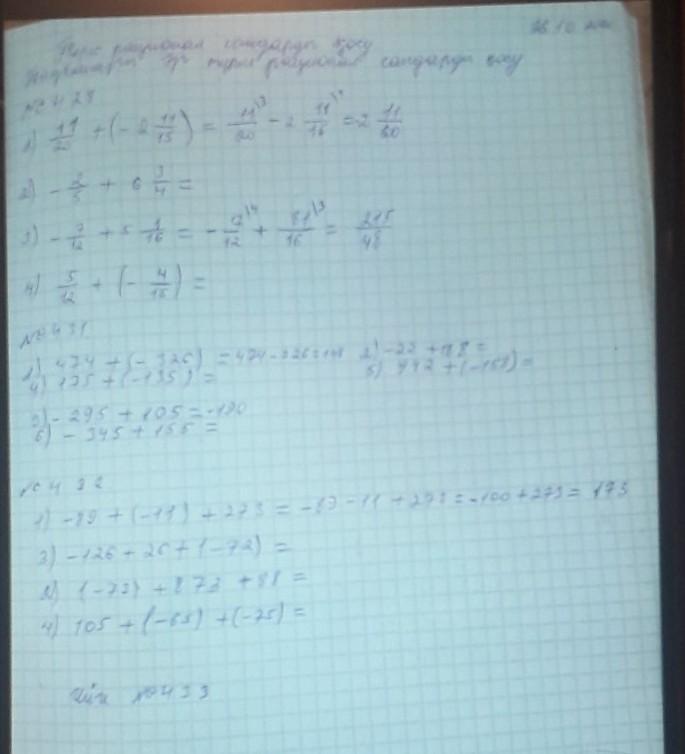 26.10
рационал сандарды қосу
рационал сандарды қосу
№ 429
1) 11/20 + (- 2 11/15) = 11/20 - 2 11/15 = -2 11/60
2) - 2/5 + 6 3/4 =
3) - 7/12 + 5 1/16 = - 7/12 + 81/16 = 215/48
4) 5/12 + (- 4/15) =
№ 431
1) 474 + (- 326) = 474 - 326 = 148 2) -22 + 88 =
4) 135 + (-135) = 5) 442 + (-163) =
3) - 295 + 105 = -190
6) - 345 + 155 =
№ 432
1) -89 + (-11) + 273 = -89 - 11 + 273 = -100 + 273 = 173
3) -126 + 26 + (-72) =
2) (-73) + 873 + 88 =
4) 105 + (-65) + (-75) =
Үйге № 433